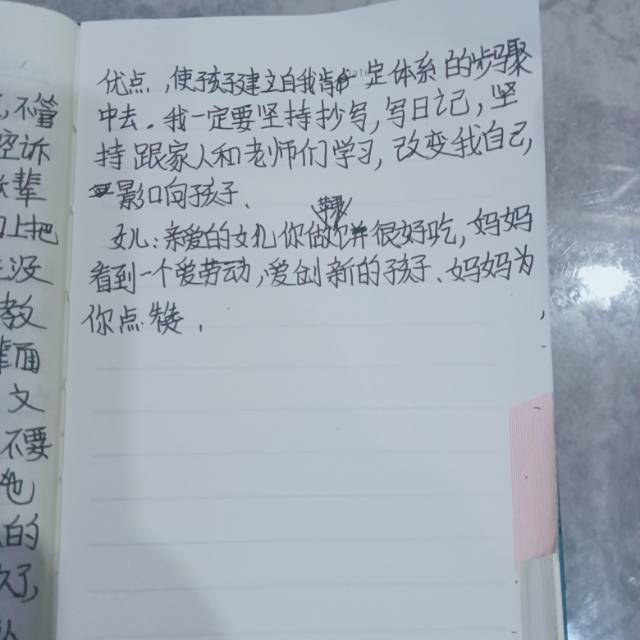 优点,使孩子建立自我肯定体系的步骤
中去。我一定要坚持抄写,写日记,坚
持跟家人和老师们学习,改变我自己,
影响孩子、
女儿:亲爱的女儿你做饼很好吃,妈妈
看到一个爱劳动,爱创新的孩子、妈妈为
你点赞.
不管
控诉
辈
上把
没
教
面
文
不要
也
的
了,